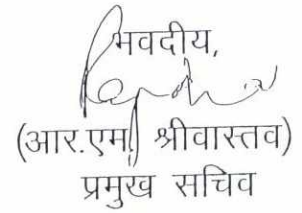 भवदीय,
(आर.एम. श्रीवास्तव)
प्रमुख सचिव